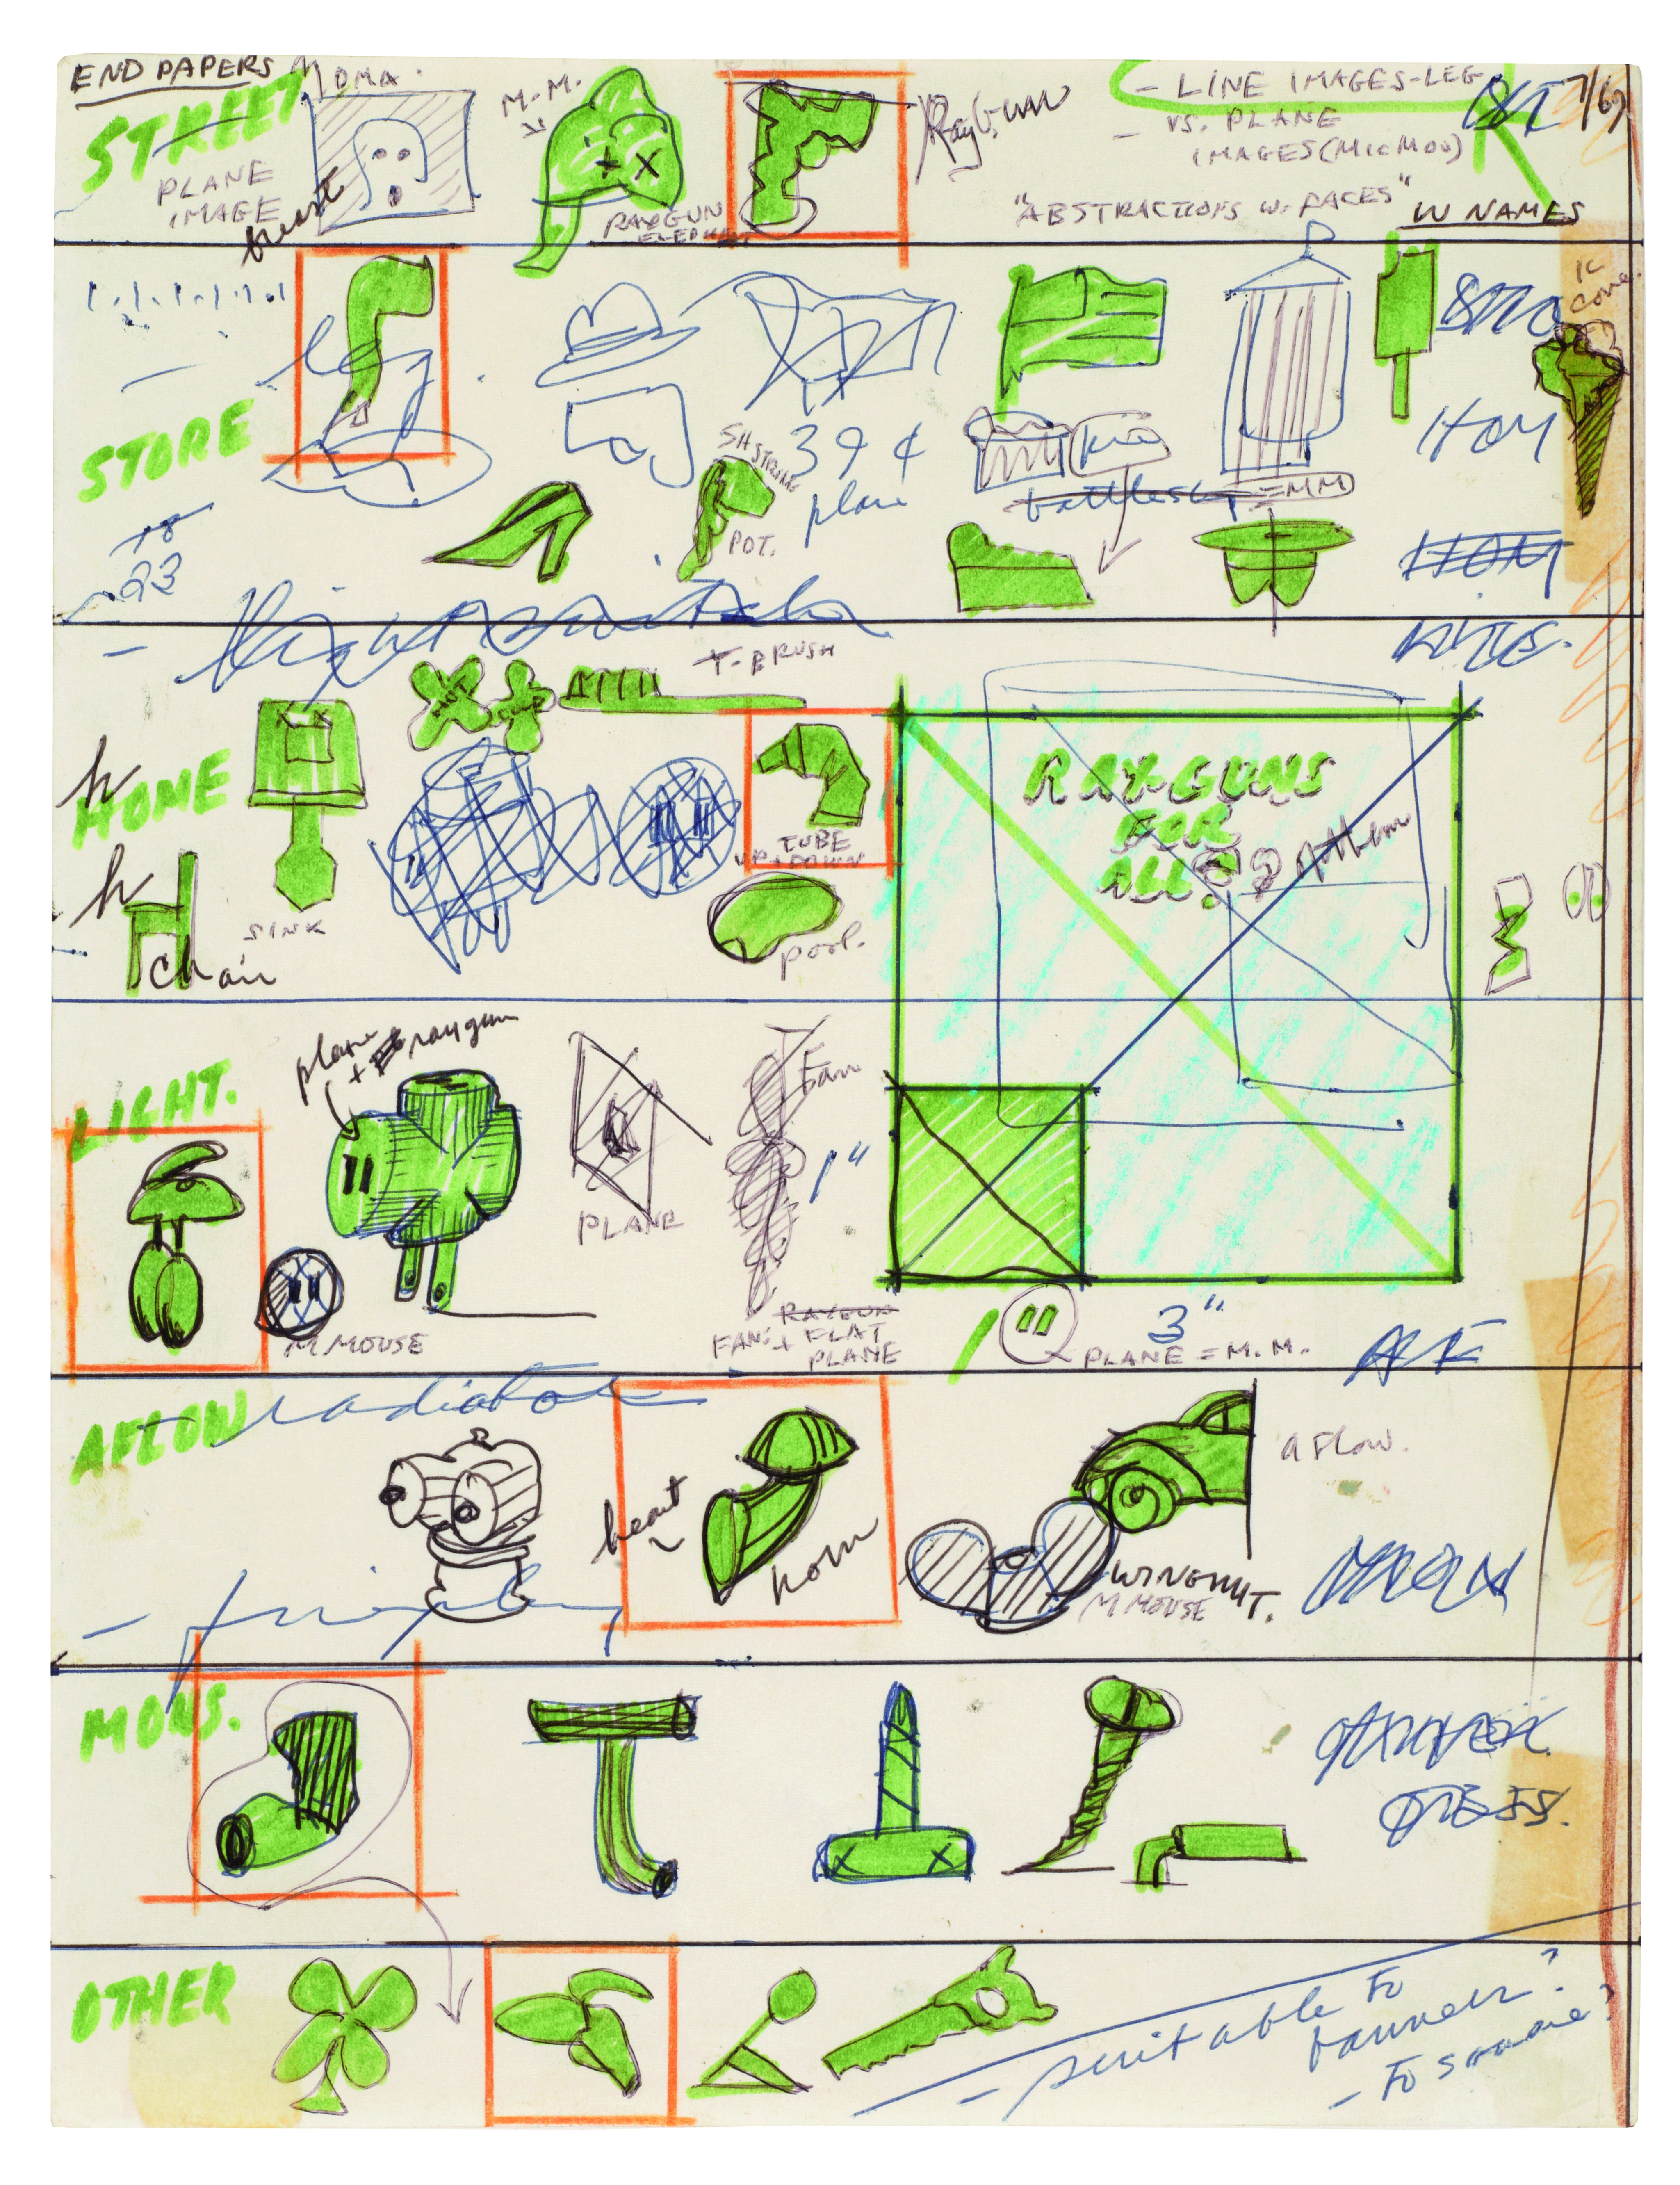 END PAPERS
MOMA
STREET
PLANE
IMAGE
breast
M.M.
RAYGUN
ELEPHANT
RayGun
- LINE IMAGES-LEG
- VS. PLANE
IMAGES (MicMou)
"ABSTRACTIONS W. FACES"
W NAMES
7/69
STORE
leg
18
23
SH STRING
POT.
39¢
plane
pie
battleship
=MM
IC
cone
HOM
HOM
light switch
HOME
h
h
chair
SINK
HOT
T-BRUSH
TUBE
UP + DOWN
pool.
RAY-GUNS
FOR
ALL
LIGHT.
plane
+ raygun
M MOUSE
PLANE
Fan
1"
FAN:
RAYGUN
FLAT
PLANE
3"
PLANE = M.M.
AFLOW
radiator
heart
horn
a Flow.
WINGNUT.
M MOUSE
MONS.
OTHER
- suitable to
banner?
- to